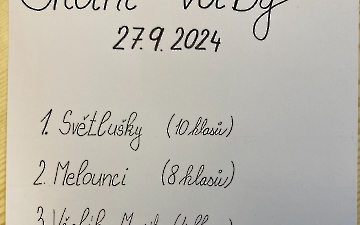 Školní volby
27.9.2024
1. Světlušky (10 hlasů)
2. Melounci (8 hlasů)
3.